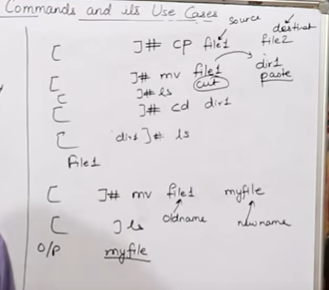 Commands and its Use Cases
source
destnat
[ ]# cp file1 file2
[ ]# mv file1 dir1
cut paste
[ ]# ls
[ ]# cd dir1
[ dir1 ]# ls
File1
[ ]# mv file1 myfile
oldname newname
[ ] ls
O/P myfile